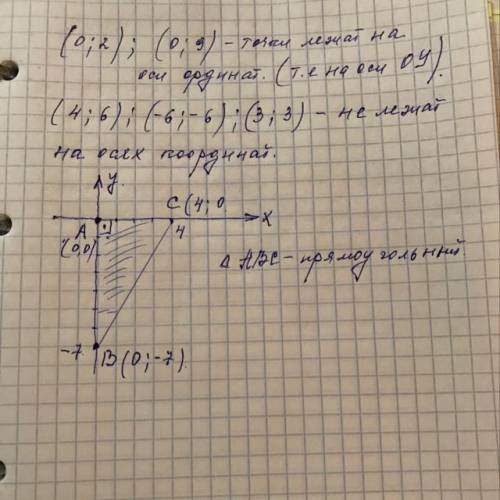 (0; 2) ; (0; 9) – точки лежат на
оси ординат. (т.е на оси ОУ).
(4; 6) ; (-6; -6) ; (3; 3) – не лежат
на осях координат.
У
C (4; 0
A
4
X
(0,0)
Δ ABC – прямоугольный.
-7
B (0; -7)